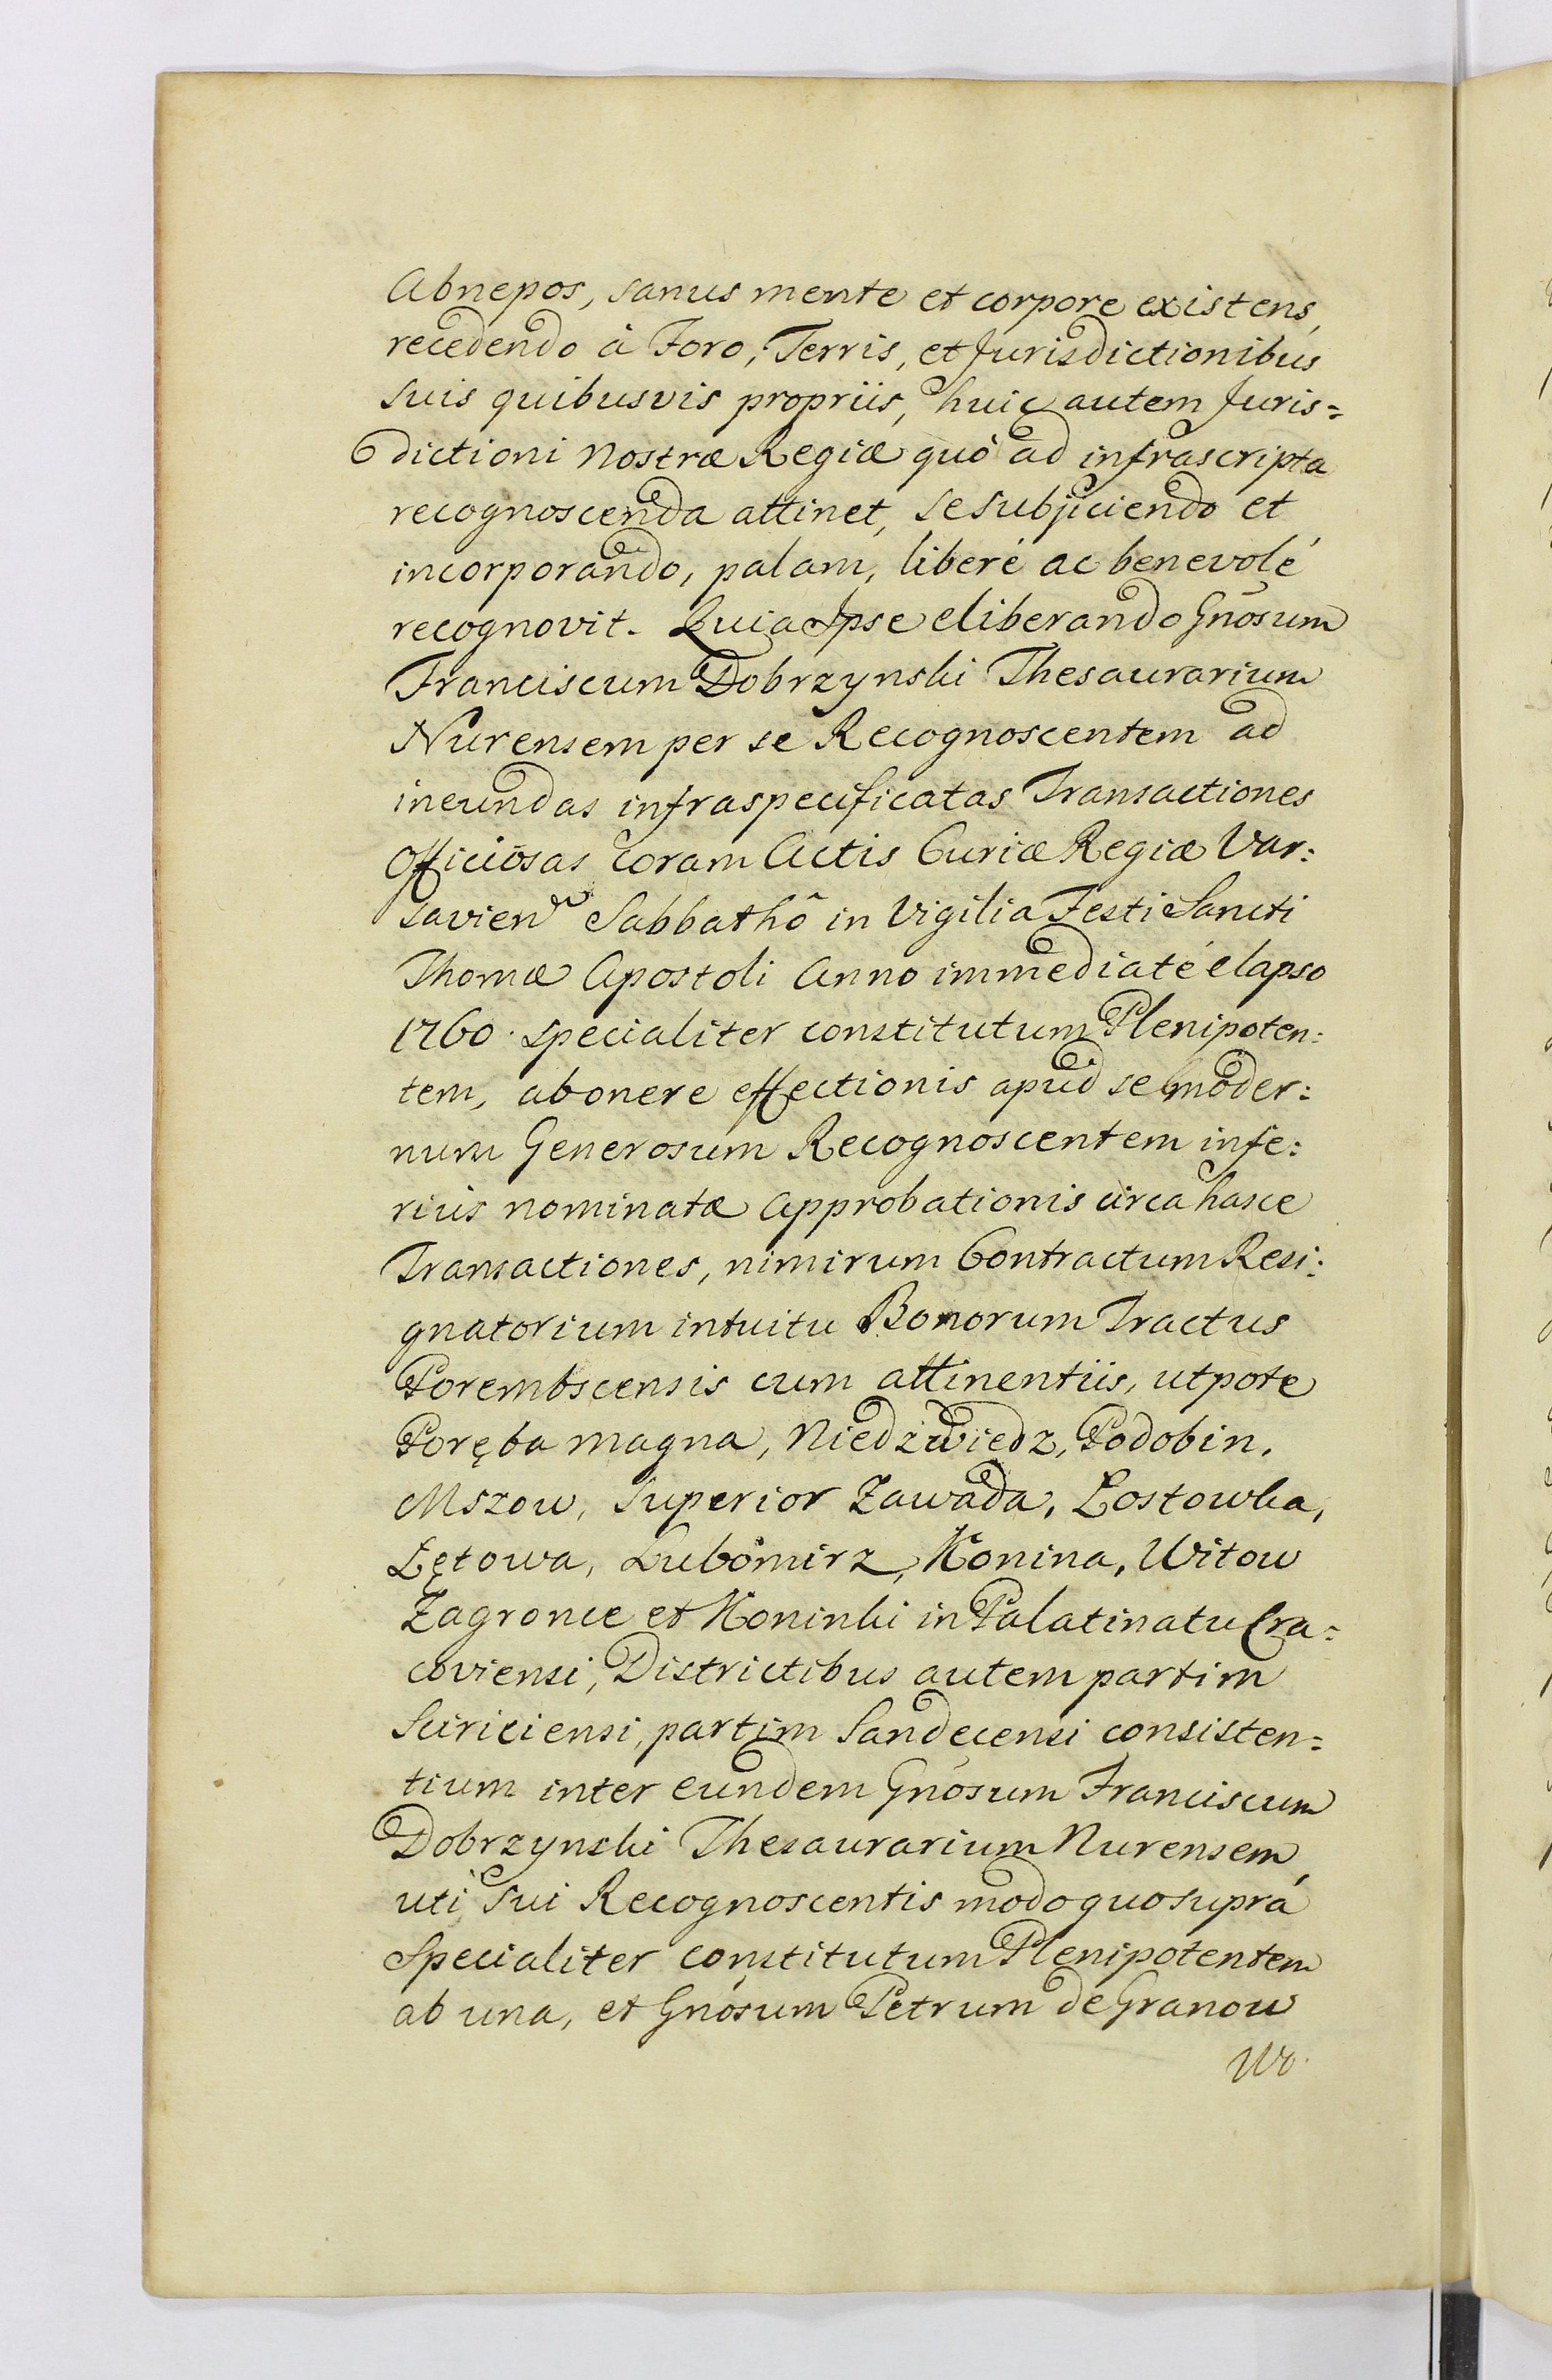 Abnepos, sanus mente et corpore existens,
recedendo à Foro, Terris, et Jurisdictionibus
suis quibusvis propriis, huic autem Juris=
dictioni Nostræ Regiæ quò ad infrascripta
recognoscenda attinet, se subjiciendo et
incorporando, palam, liberé ac benevolé
recognovit. Quia Ipse eliberando Gnõsum
Franciscum Dobrzynski Thesaurarium
Nurensem per se Recognoscentem ad
ineundas infraspecificatas Transactiones
Officiosas coram Actis Curiæ Regiæ Var:
savien Sabbathô in Vigilia Festi Sancti
Thomæ Apostoli Anno immediaté elapso
1760. specialiter constitutum Plenipoten:
tem, ab onere effectionis apud se moder:
num Generosum Recognoscentem infe:
rius nominatæ Approbationis circa hasce
Transactiones, nimirum Contractum Resi:
gnatorium intuitu Bonorum Tractus
Porembscensis cum attinentiis, utpote
Poręba magna, Niedzwiedz, Podobin,
Mszow, Superior Zawada, Łostowka,
Łętowa, Lubomirz, Konina, Witow
Zagronie et Koninki in Palatinatu Cra=
coviensi, Districtibus autem partim
Sciriciensi, partim Sandecensi consisten=
tium inter eundem Gnõsum Franciscum
Dobrzynski Thesaurarium Nurensem
uti sui Recognoscentis modo quo suprá
Specialiter constitutum Plenipotentem
ab una, et Gnõsum Petrum de Granow
Wo.